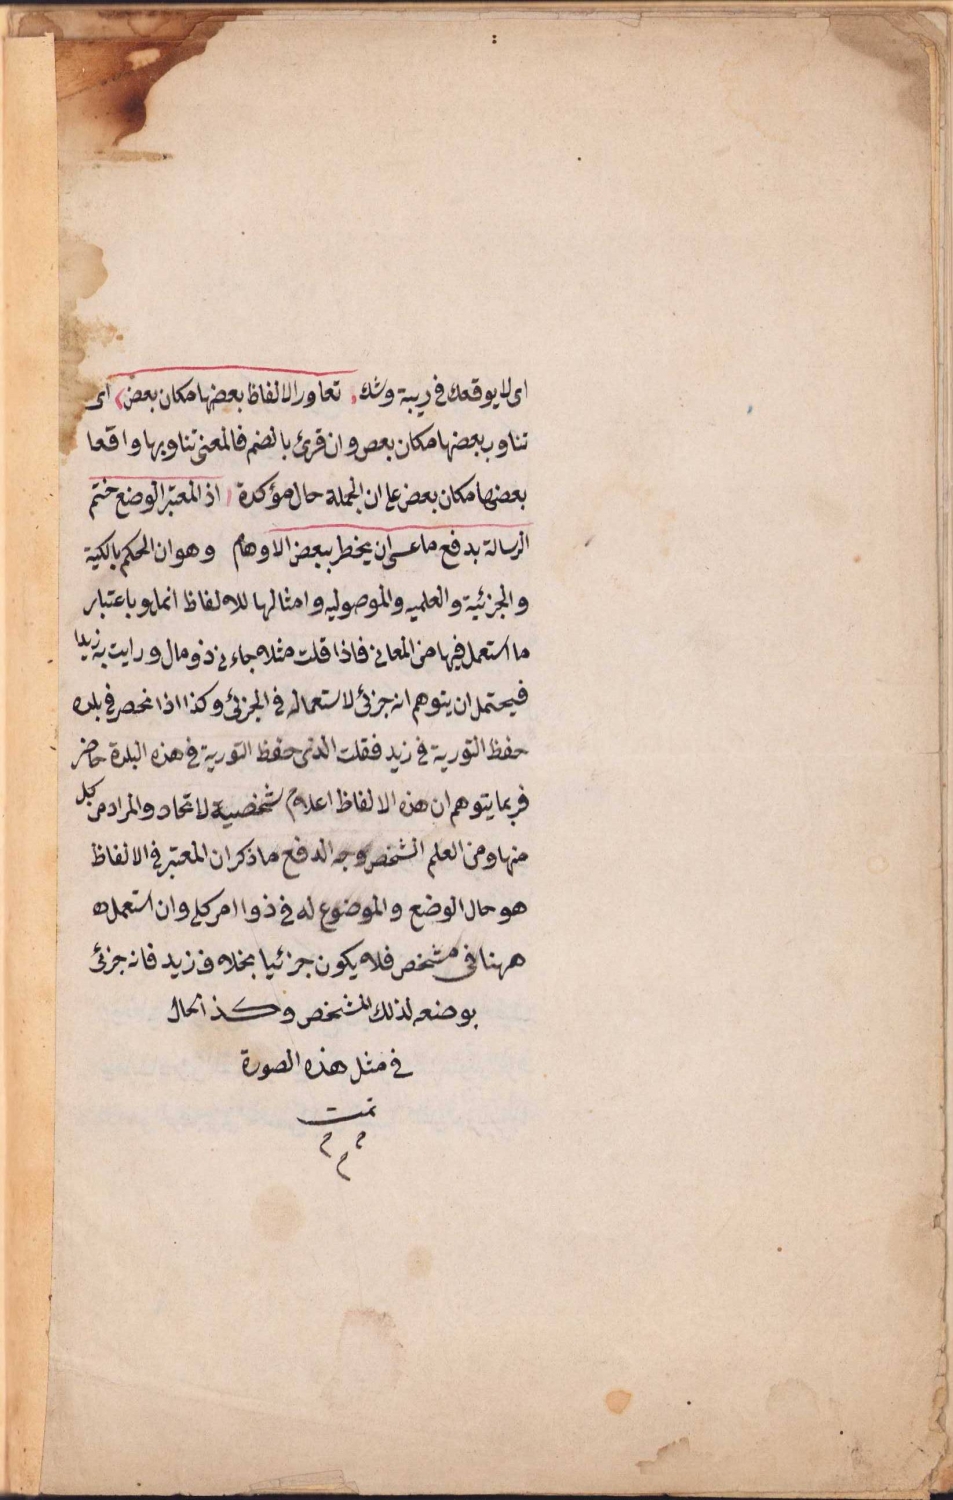 اى لا يوقعك فى ريبة وشك تعاور الالفاظ بعضها مكان بعض اى
تناوب بعضها مكان بعص وان قرئ بالضم فالمعنى تناوبها واقعا
بعضها مكان بعض على ان الجملة حال مؤكدة اذ المعتبر الوضع ختم
الرسالة بدفع ما عسى ان يخطر ببعض الاوهام وهو ان الحكم بالكلية
والجزئية والعلميه والموصوليه وامثالها للالفاظ انما هو باعتبار
ما استعمل فيها من المعانى فاذا قلت مثلا جاءنى ذو مال ورايت به زيدا
فيحتمل ان يتوهم انه جزئى لاستعماله فى الجزئى وكذا اذا انحصر فى بلده
حفظ التورية فى زيد فقلت الذى حفظ التورية فى هذه البلدة حاضر
فربما يتوهم ان هذه الالفاظ اعلام شخصية لاتحاد والمراد من كل
منها ومن العلم الشخص وجه الدفع ما ذكر ان المعتبر فى الالفاظ
هو حال الوضع والموضوع له فى ذو امر كلى وان استعمل
ههنا فى مشخص فلا يكون جزئيا بخلاف زيد فانه جزئى
بوضعه لذلك المشخص وكذ الحال
فى مثل هذه الصورة
تمت
م م م